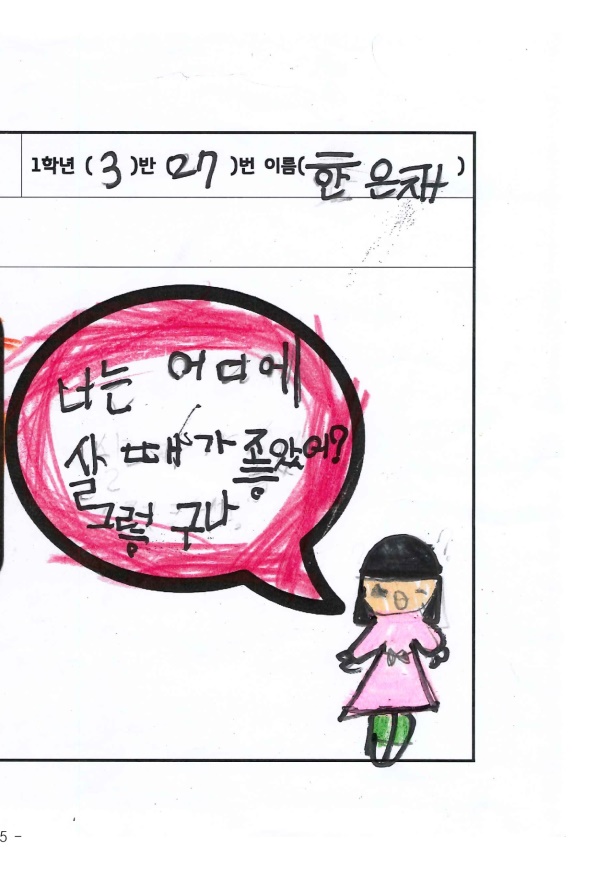 1학년 ( 3 )반 27 )번 이름( 한 은재 )
너는 어디에
살 때가 좋았어?
그렇 구나
5 -